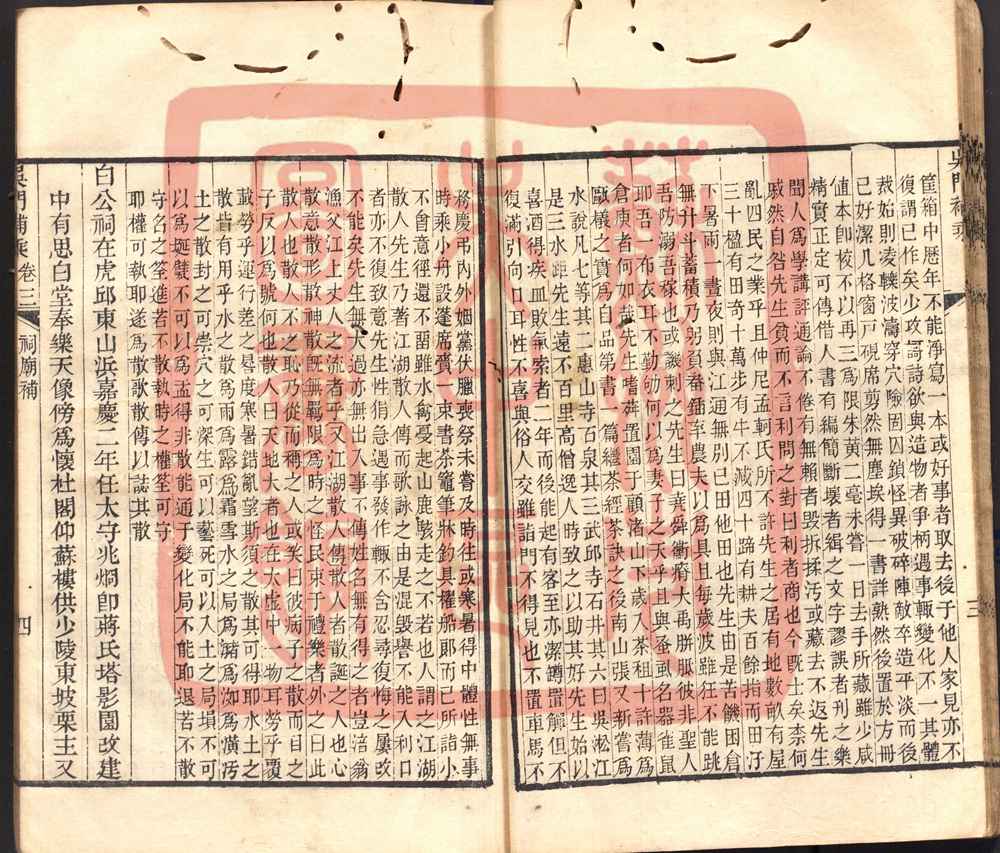 筐箱中歷年不能淨寫一本或好事者取去後于他人家見亦不
復謂已作矣少攻謌詩欲與造物者爭柄遇事輒變化不一其體
裁始則凌轢波濤穿穴險固囚鎖怪異破碎陣敵卒造平淡而後
已好潔几格窗戸硯席剪然無塵埃得一書詳熟然後置於方冊
値本即校不以再三爲限朱黃二毫未嘗一日去手所藏雖少咸
精實正定可傳借人書有編簡斷壞者緝之文字謬誤者刊之樂
聞人爲學講評通論不倦有無賴者毀拆揉汚或藏去不返先生
戚然自咎先生貧而不言利問之對曰利者商也今旣士矣柰何
亂四人之業乎且仲尼孟軻氏所不許先生之居有地數畝有屋
三十楹有田奇十萬步有牛不減四十蹄有耕夫百餘指而田汙
下暑雨一晝夜則與江通無別己田他田也先生由是苦饑困倉
無升斗蓄積乃躬負畚鍤率農夫以爲具且每歲波雖狂不能跳
吾防溺吾稼也或譏刺之先生曰堯舜黴瘠大禹胼胝彼非聖人
耶吾一布衣耳不勤劬何以爲妻子之天乎且與蚤虱名器雀鼠
倉庾者何如哉先生嗜荈置園于顧渚山下歲入茶租十許薄爲
甌檥之實爲自品第書一篇繼茶經茶訣之後南山張又新嘗爲
水說凡七等其二惠山寺石泉其三武邱寺石井其六曰吳淞江
是三水距先生遠不百里高僧逸人時致之以助其好先生始以
喜酒得疾血敗氣索者二年而後能起有客至亦潔罇置觶但不
復滿引向口耳性不喜與俗人交雖詣門不得見也不置車馬不
務慶弔內外姻黨伏臘喪祭未嘗及時往或寒暑得中體性無事
時乘小舟設蓬席賷一束書茶竈筆牀釣具櫂船郞而已所詣小
不會意徑還不畱雖水禽戞起山鹿駭走之不若也人謂之江湖
散人先生乃著江湖散人傳而歌詠之由是混毀譽不能入利口
者亦不復致意先生性狷急遇事發作輒不含忍尋復悔之屢改
不能矣先生無大過亦無出入事不傳姓名無有得之者豈涪翁
漁父江上丈人之流者乎又江湖散人傳散人者散誕之人也心
散意散形散神散旣無羈限爲時之怪民束于禮樂者外之曰此
散人也散人不知恥乃從而稱之人或笑曰彼病子之散而目之
子反以爲號何也散人曰天地大者也在太虛中一物耳勞乎覆
載勞乎運行差之晷度寒暑錯亂望斯須之散其可得耶水土之
散皆有用乎水之散爲雨爲露爲霜雪水之局爲瀦爲洳爲潢汚
土之散封之可崇穴之可深生可以藝死可以入土之局塤不可
以爲埏甓不可以爲盂得非散能通于變化局不能耶退若不散
守名之筌進若不散執時之權筌可守
耶權可執耶遂爲散歌散傳以誌其散
白公祠在虎邱東山浜嘉慶二年任太守兆炯卽蔣氏塔影園改建
中有思白堂奉樂天像傍爲懷杜閣仰蘇樓供少陵東坡栗主又
吳門補乘 卷三 祠廟補
四
吳門補乘
三